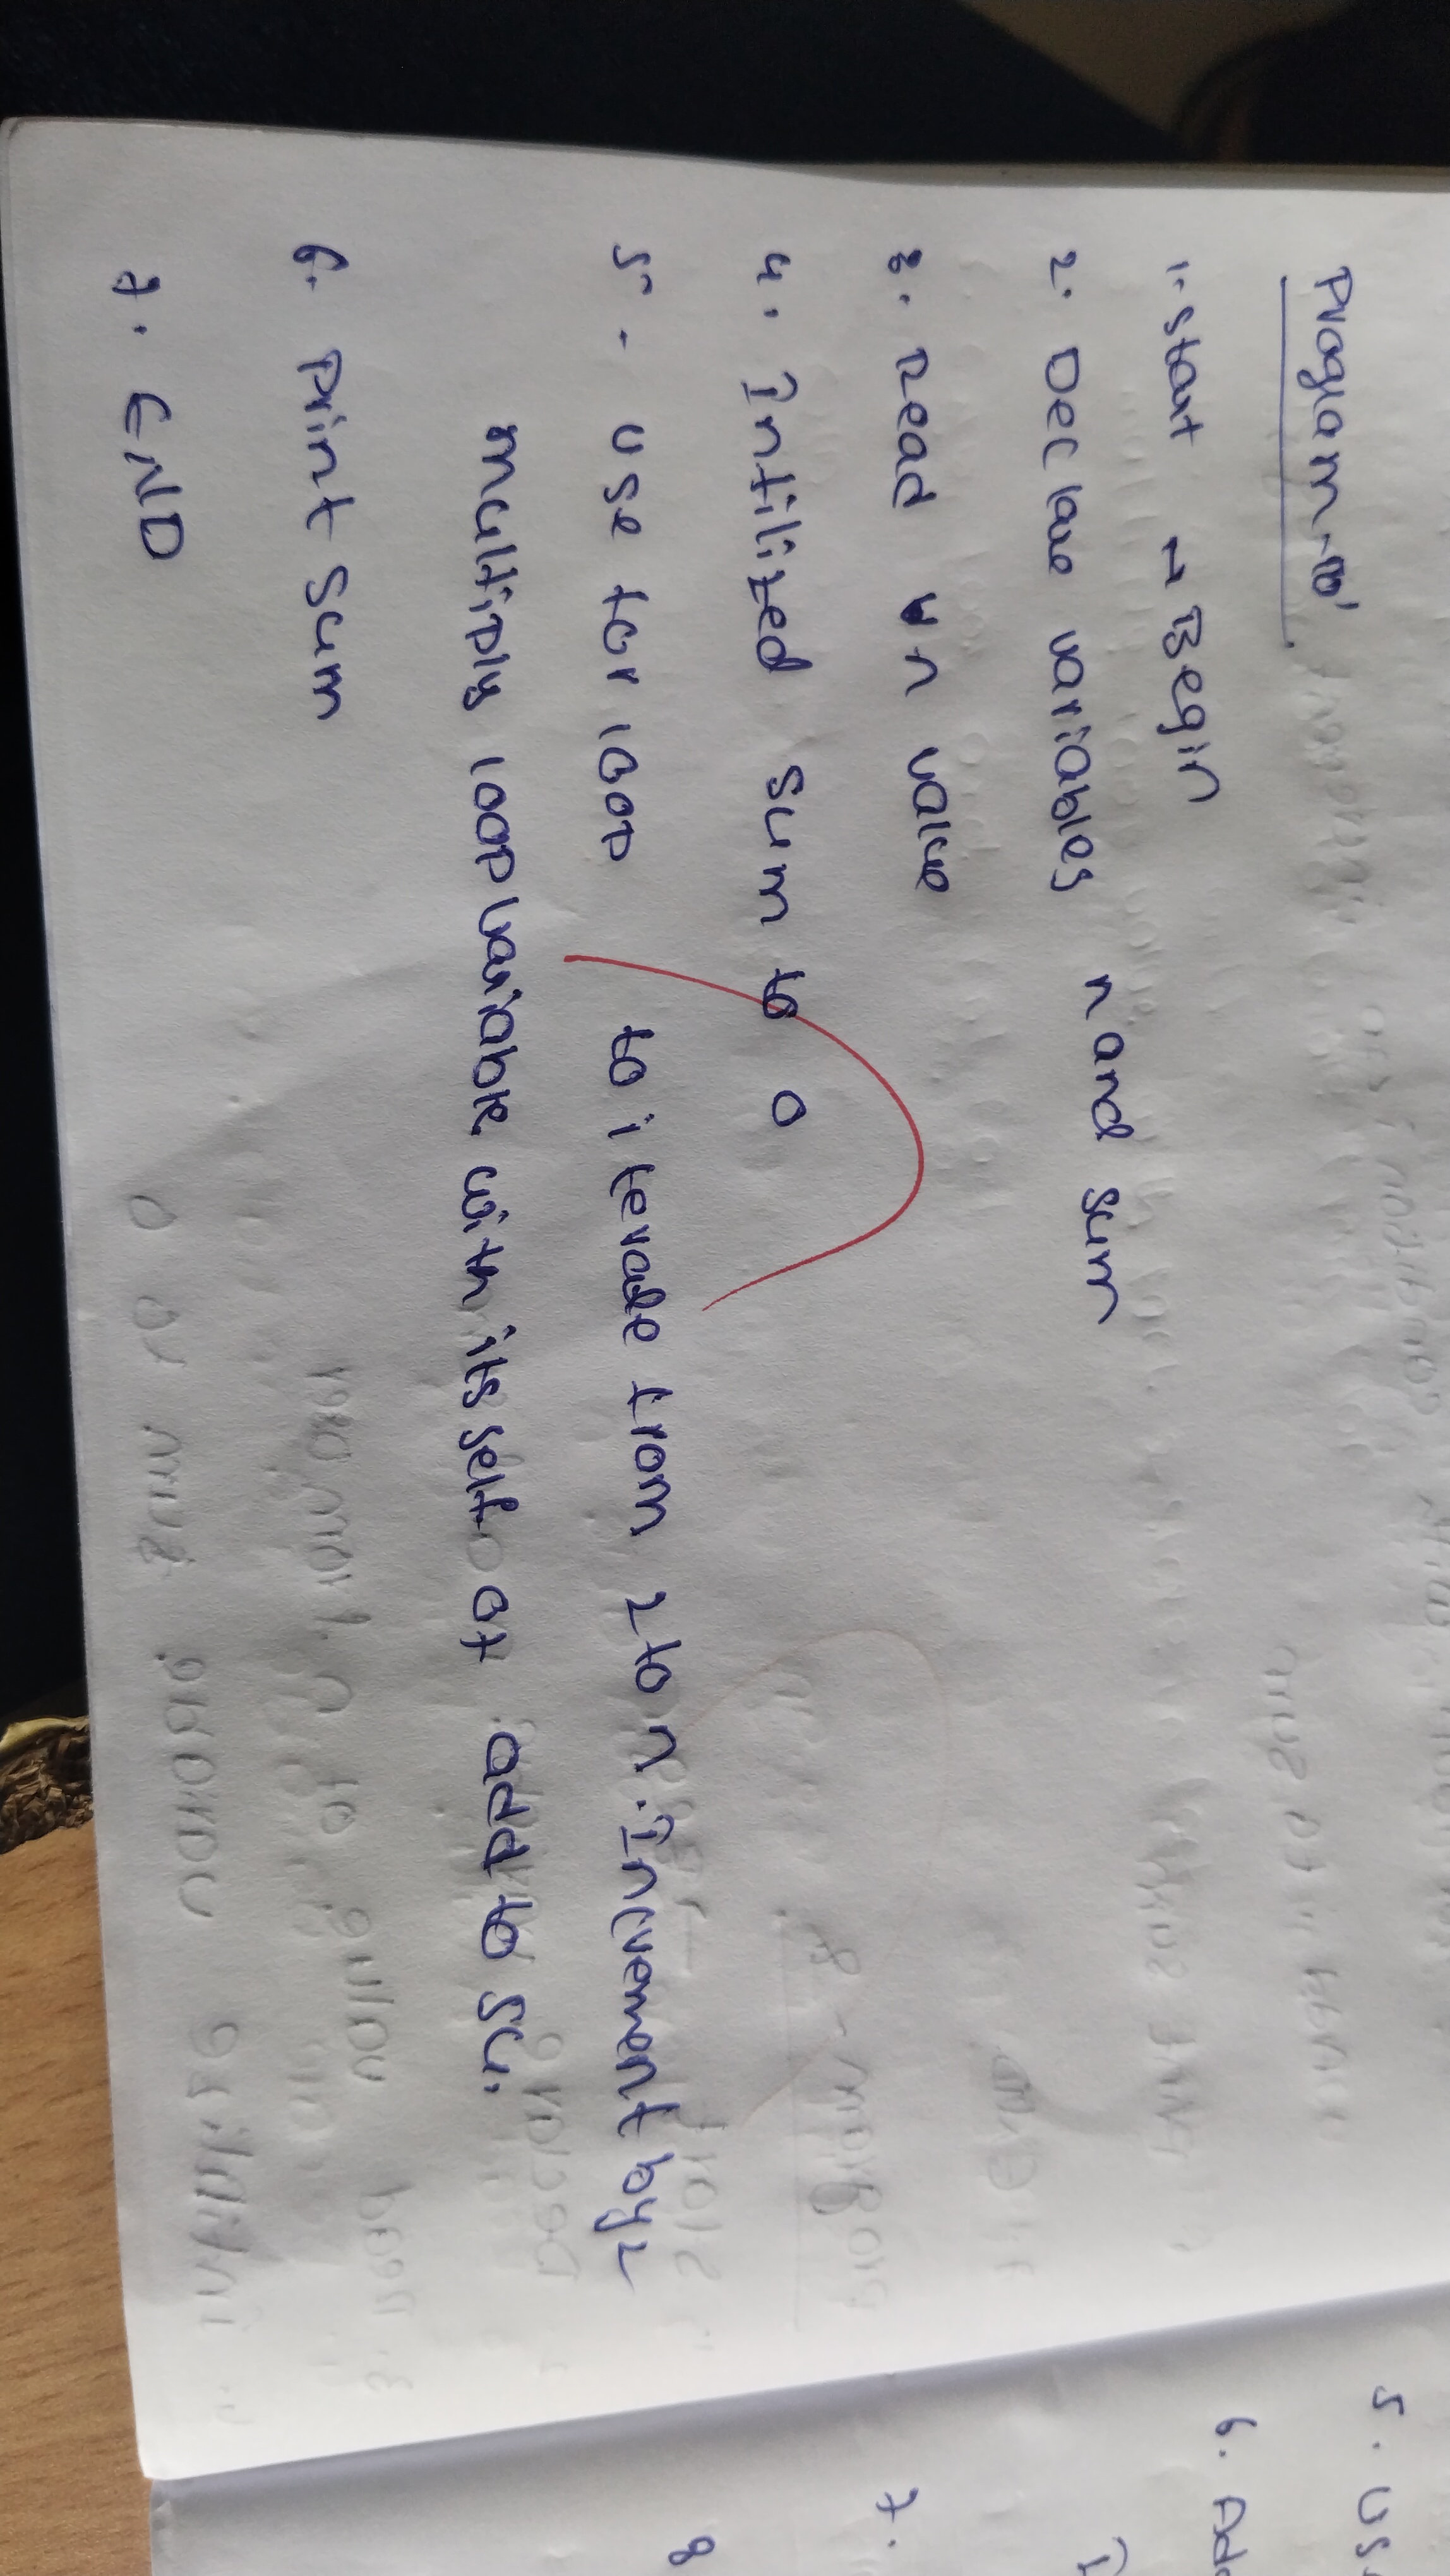 Program-
1. Start → Begin
2. Declare variables n and sum
3. Read n value
4. Intilized sum to 0
5. - use for loop to iterate from 2 to n. Increment by 2
multiply loop variable with itsself at add to su.
6. Print sum
7. END
5. Us
6. Ad
7.
8